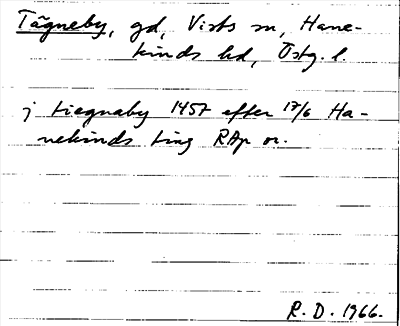 Tägneby, gd, Vists sn, Hane-
kinds hd, Östg. l.
j tiegnaby 1457 efter 17/6 Ha-
nekinds ting RAp or.
R. D. 1966.